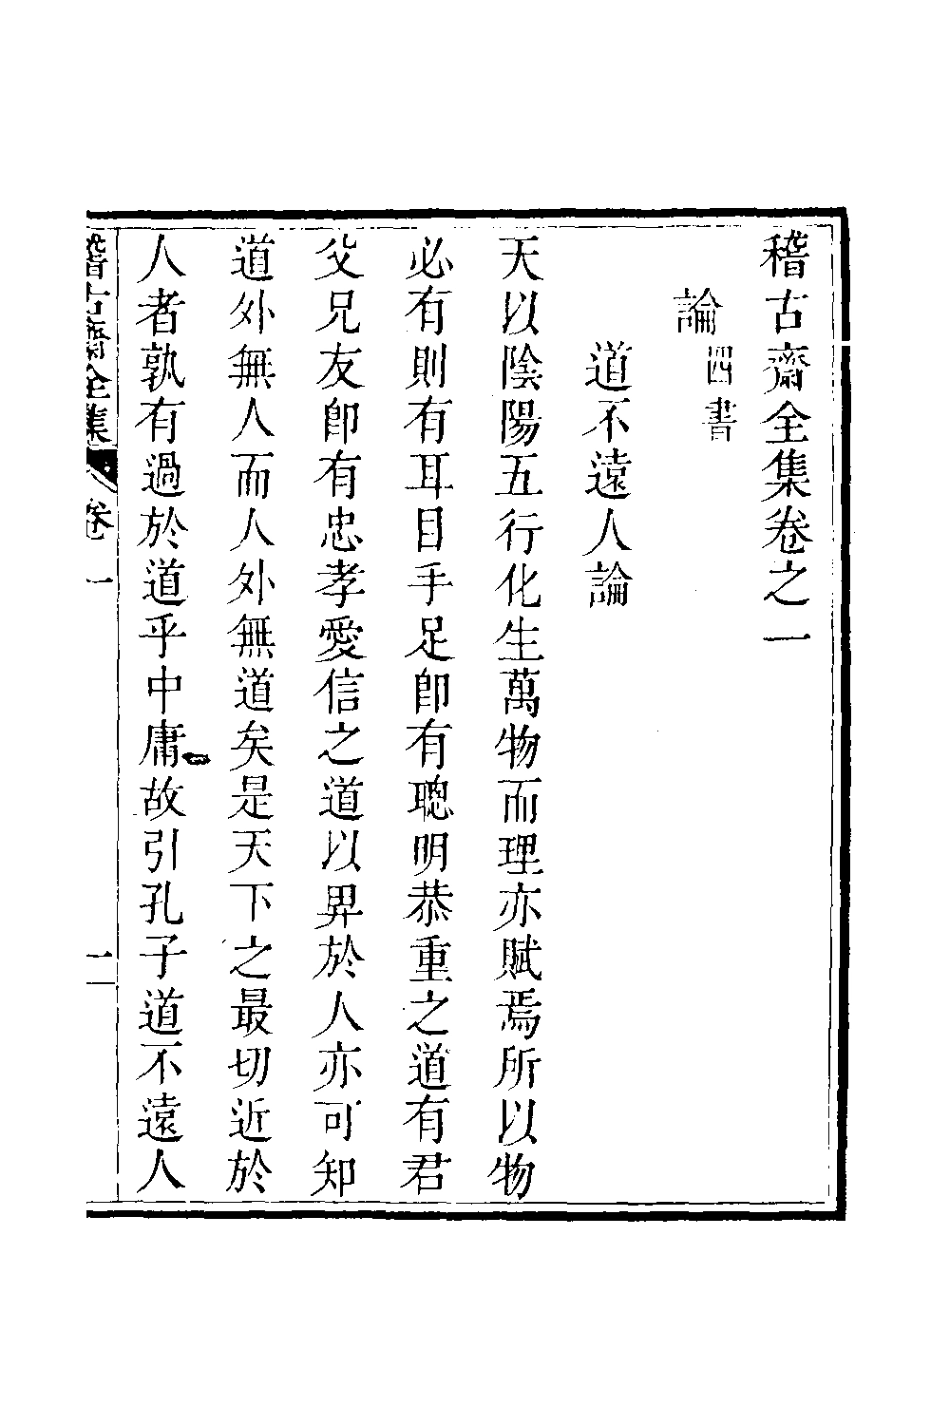 稽古齋全集卷之一
論
四書
道不遠人論
天以陰陽五行化生萬物而理亦賦焉所以物
必有則有耳目手足卽有聰明恭重之道有君
父兄友卽有忠孝愛信之道以畀於人亦可知
道外無人而人外無道矣是天下之最切近於
人者孰有過於道乎中庸故引孔子道不遠人
稽古齋全集
卷一
一